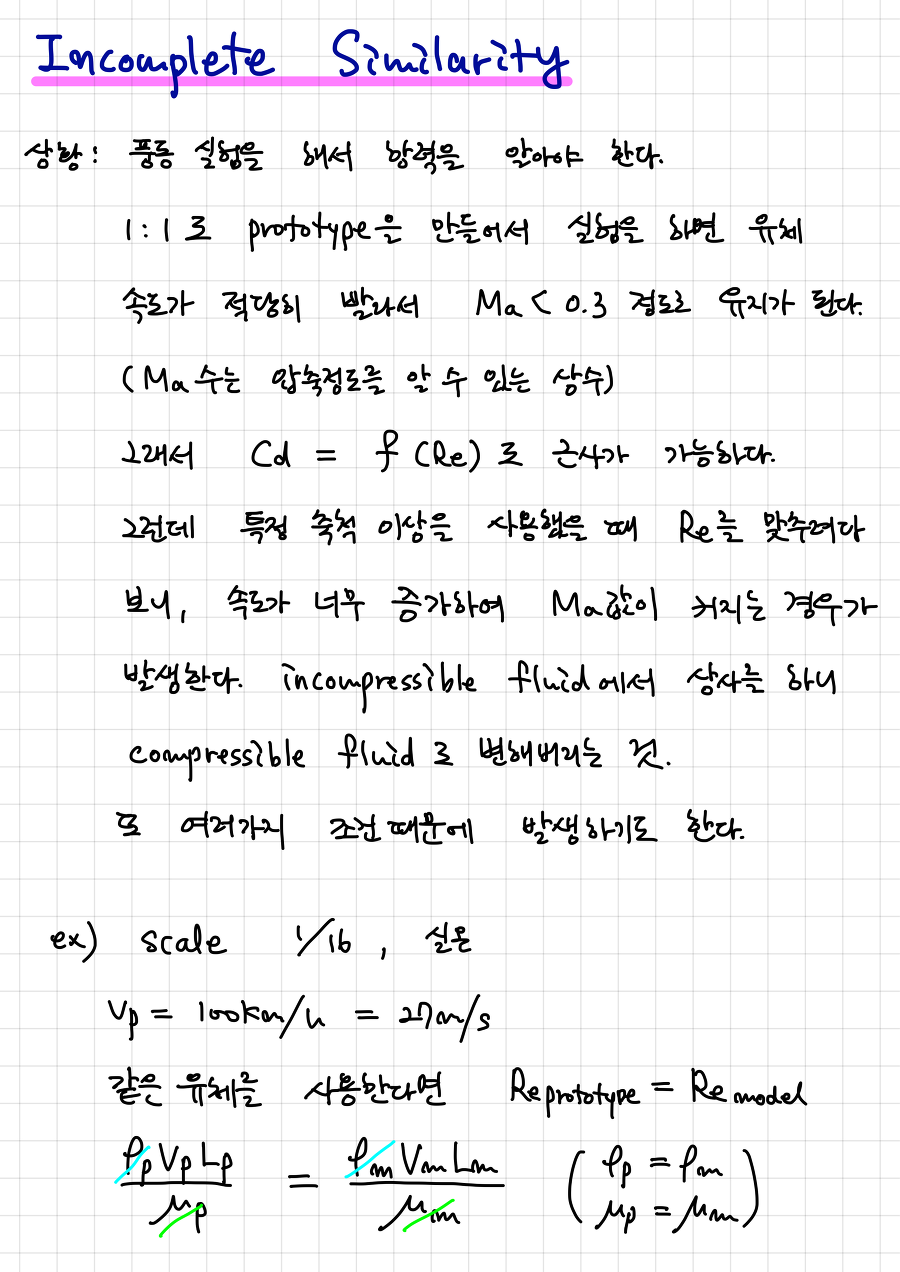 Incomplete Similarity
상황: 풍동 실험을 해서 항력을 알아야 한다.
1:1로 prototype을 만들어서 실험을 하면 유체
속도가 적당히 빨라서 Ma < 0.3 정도로 유지가 된다.
(Ma수는 압축정도를 알 수 있는 상수)
그래서 Cd = f(Re)로 근사가 가능하다.
그런데 특정 축척 이상을 사용했을 때 Re를 맞추려다
보니, 속도가 너무 증가하여 Ma값이 커지는 경우가
발생한다. incompressible fluid에서 상사를 하니
compressible fluid로 변해버리는 것.
또 여러가지 조건때문에 발생하기도 한다.
ex) scale 1/16, 실온
Vp = 100km/h = 27m/s
같은 유체를 사용한다면 Re prototype = Re model
ρp Vp Lp / μp = ρm Vm Lm / μm (ρp = ρm μp = μm)